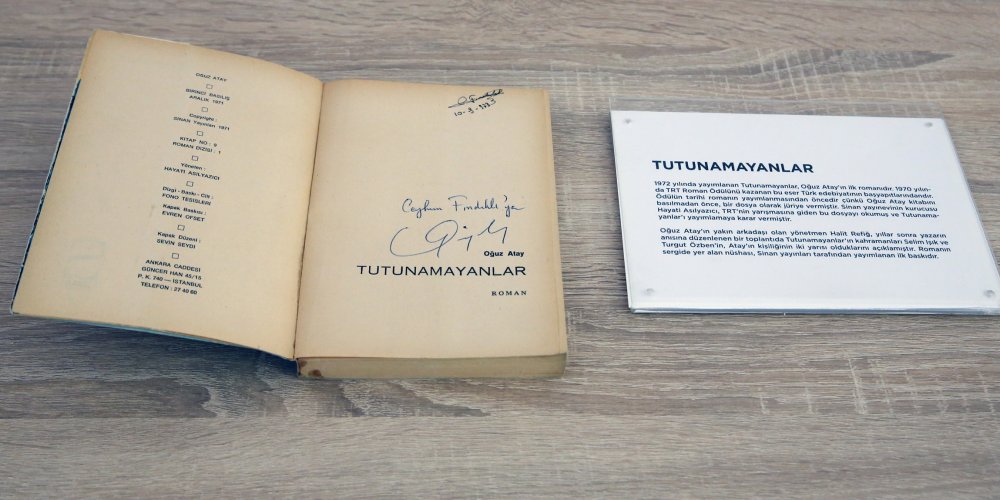 OĞUZ ATAY
BİRİNCİ BASILIŞ
ARALIK 1971
Copyright :
SİNAN Yayınları 1971
KİTAP NO : 9
ROMAN DİZİSİ : 1
Yöneten :
HAYATİ ASILYAZICI
Dizgi - Baskı - Cilt :
FONO TESİSLERİ
Kapak Baskısı :
EVREN OFSET
Kapak Düzeni :
SEVİN SEYDİ
ANKARA CADDESİ
GÜNCER HAN 45/15
P. K. 740 — İSTANBUL
TELEFON : 27 40 60
10-3-1973
Ceyhun Fındıklı'ya
Oğuz Atay
TUTUNAMAYANLAR
ROMAN
TUTUNAMAYANLAR
1972 yılında yayımlanan Tutunamayanlar, Oğuz Atay'ın ilk romanıdır. 1970 yılın-
da TRT Roman Ödülünü kazanan bu eser Türk edebiyatının başyapıtlarındandır.
Ödülün tarihi romanın yayımlanmasından öncedir çünkü Oğuz Atay kitabını
basılmadan önce, bir dosya olarak jüriye vermiştir. Sinan yayınevinin kurucusu
Hayati Asılyazıcı, TRT'nin yarışmasına giden bu dosyayı okumuş ve Tutunama-
yanlar'ı yayımlamaya karar vermiştir.
Oğuz Atay'ın yakın arkadaşı olan yönetmen Halit Refiğ, yıllar sonra yazarın
anısına düzenlenen bir toplantıda Tutunamayanlar'ın kahramanları Selim Işık ve
Turgut Özben'in, Atay'ın kişiliğinin iki yarısı olduklarını açıklamıştır. Romanın
sergide yer alan nüshası, Sinan yayınları tarafından yayımlanan ilk baskıdır.